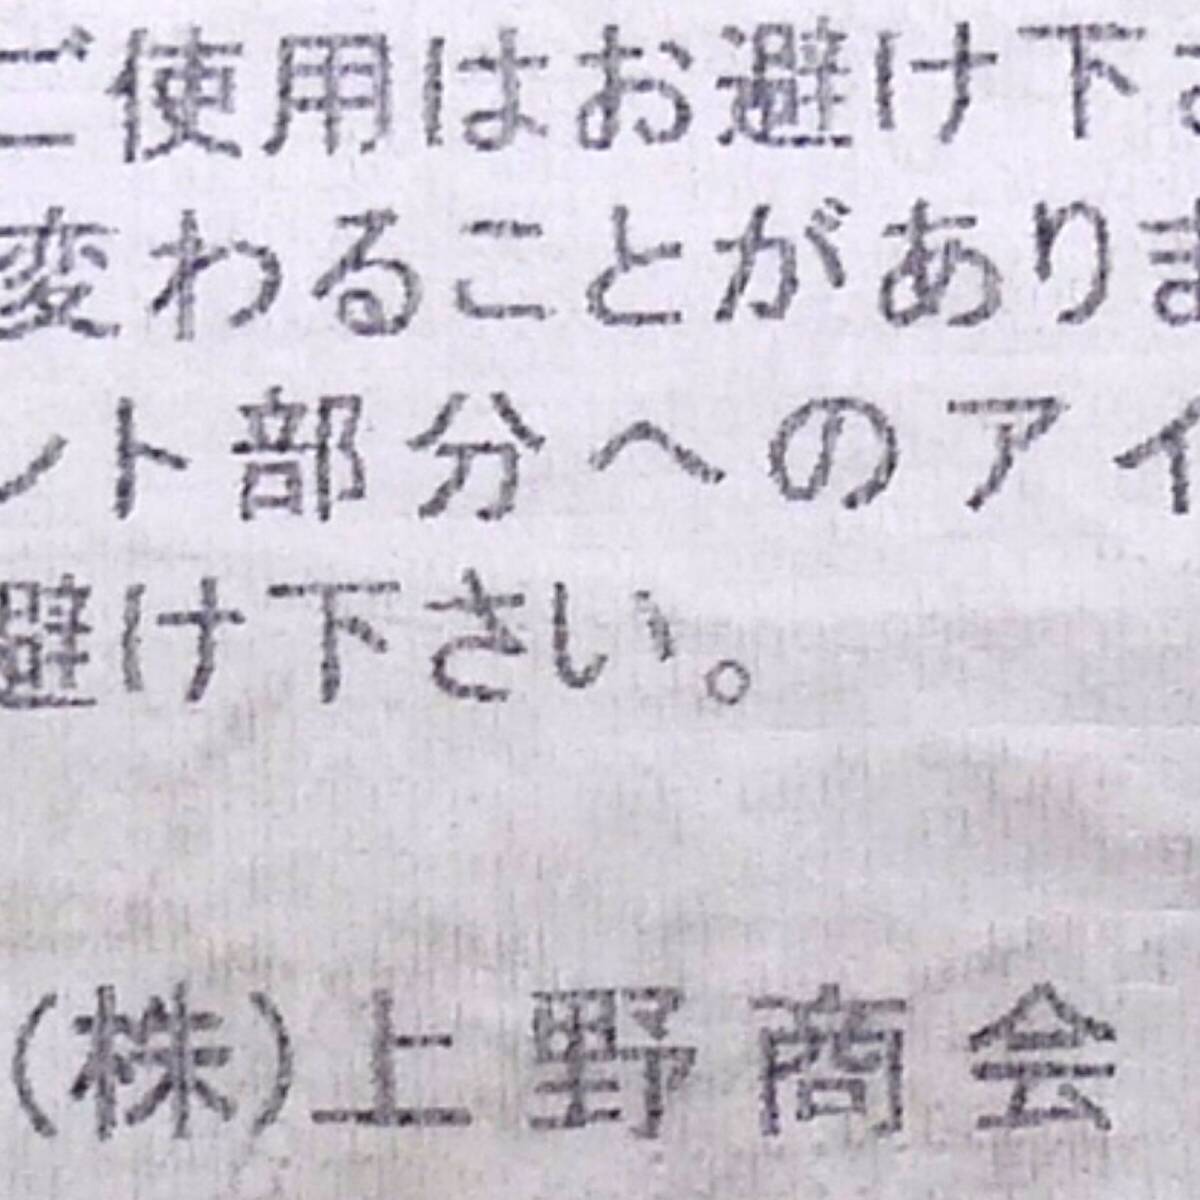 ご使用はお避け下さ
変わることがありま
ント部分へのアイ
避け下さい。
(株)上野商会